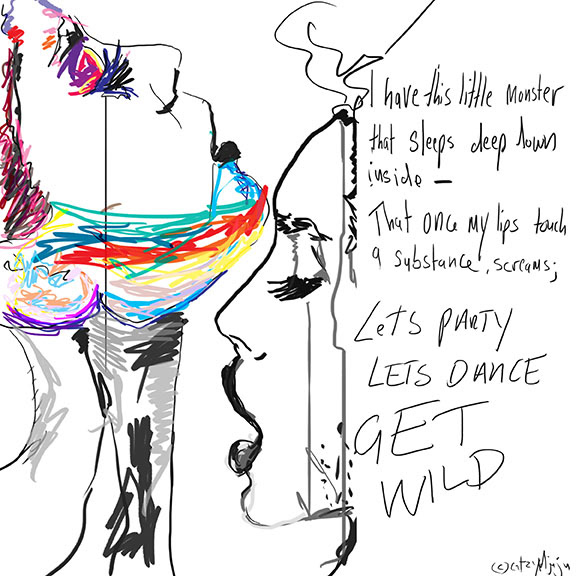 I have this little monster
that sleeps deep down
inside –
That once my lips touch
a substance, screams;
LETS PARTY
LETS DANCE
GET
WILD